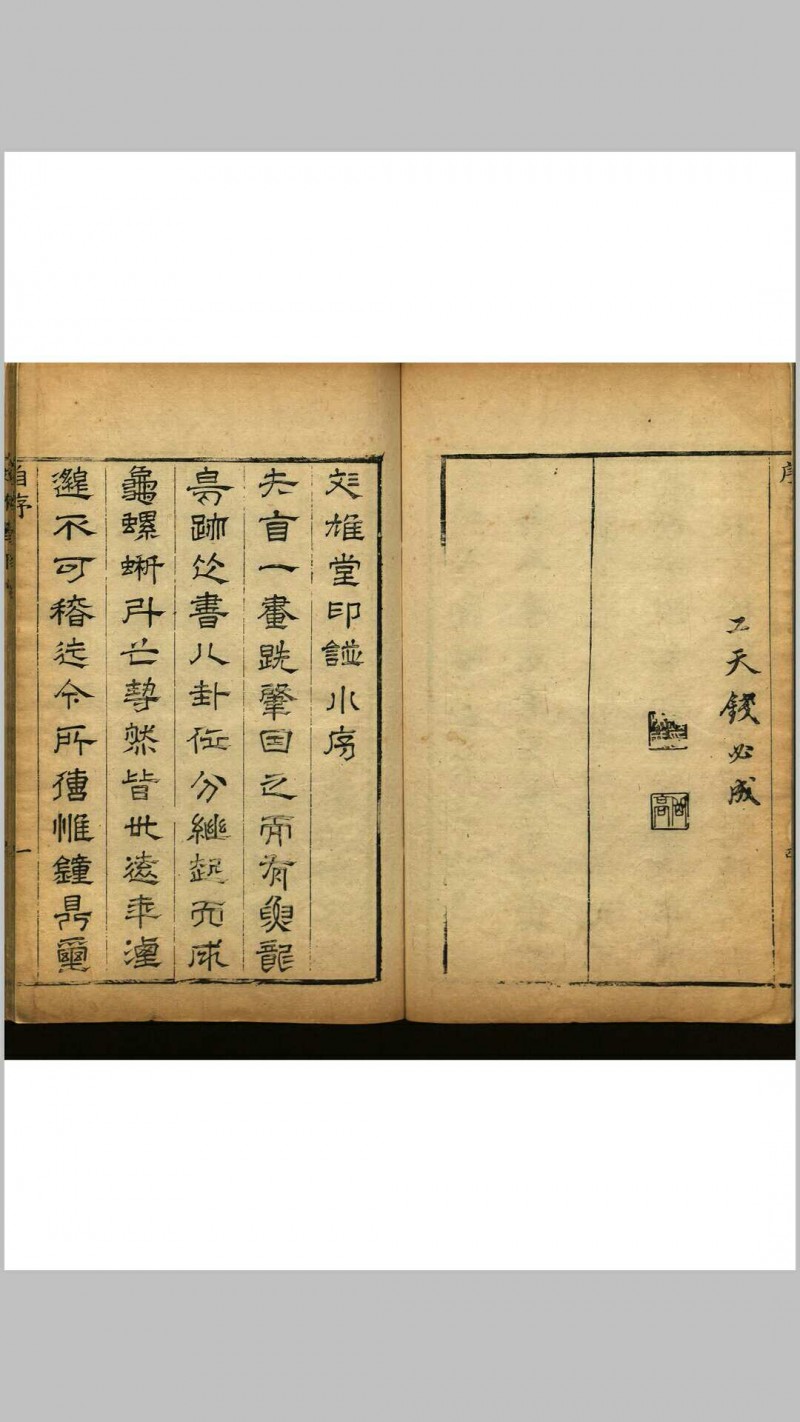 序
工天錢必成
雄堂印譜小序
夫盲一畫跣肇国之而有魚龍
鳥跡之書八卦位分繼起而成
龜螺蝌斗之勢然皆世遠年湮
邈不可稽迄今所傳惟鐘鼎
自序
一